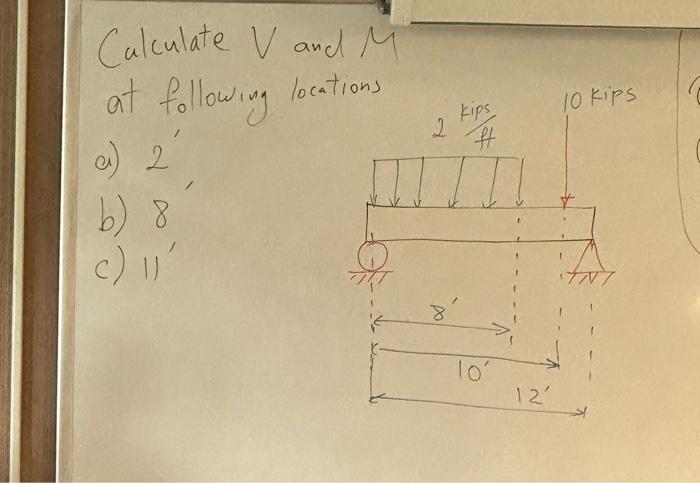 Calculate V and M
at following locations
a) 2'
b) 8'
c) 11'
2 kips/ft
10 kips
8'
10'
12'